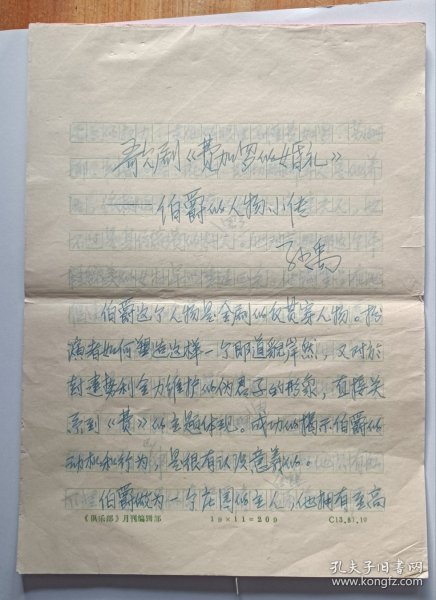 歌剧《费加罗的婚礼》
——伯爵的人物小传
孙禹
伯爵这个人物是全剧的反贯穿人物。扮
演者如何塑造这样一个即道貌岸然，又对於
封建势利全力维护的伪君子的形象，直接关
系到《费》的主题体现。成功的揭示伯爵的
动机和行为，是很有认识意义的。
伯爵做为一个庄园的主人，他拥有至高
《俱乐部》月刊编辑部
19×11=209
C(3.8).10
孔夫子旧书网
www.kongfz.com